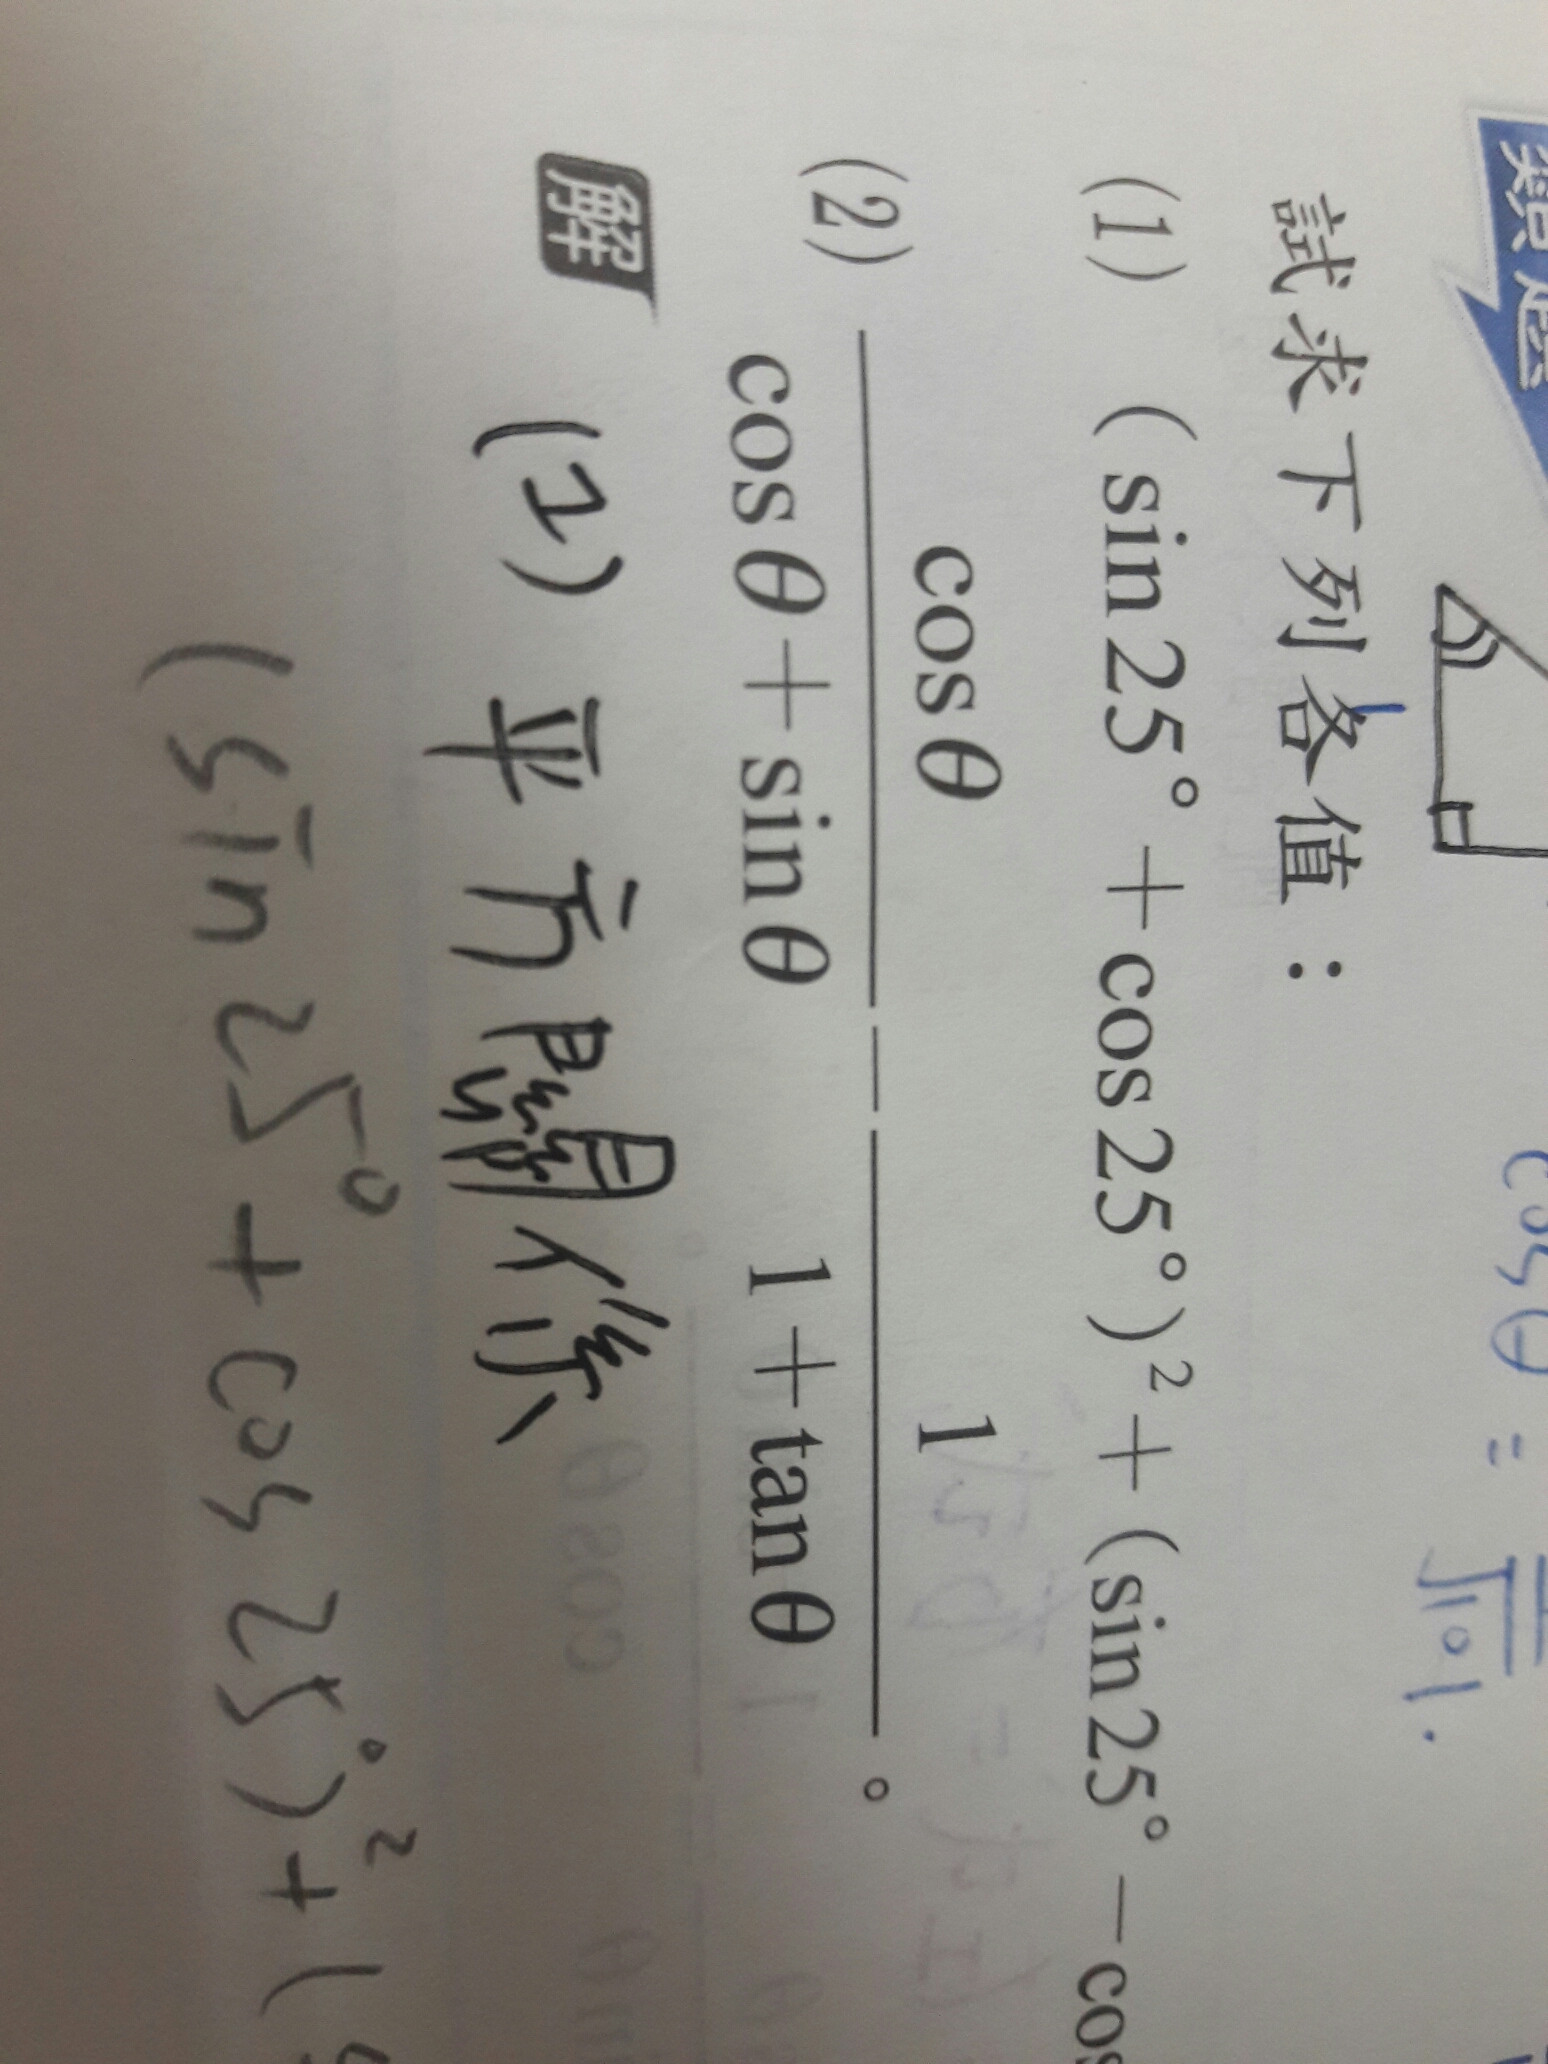 類題
cosθ =
√101.
試求下列各值：
(1) (sin 25° + cos 25°)² + (sin 25° − cos
(2) cosθ / (cosθ + sinθ) − 1 / (1 + tanθ) 。
解 (1) 平方關係
(sin 25° + cos 25°)² + (s